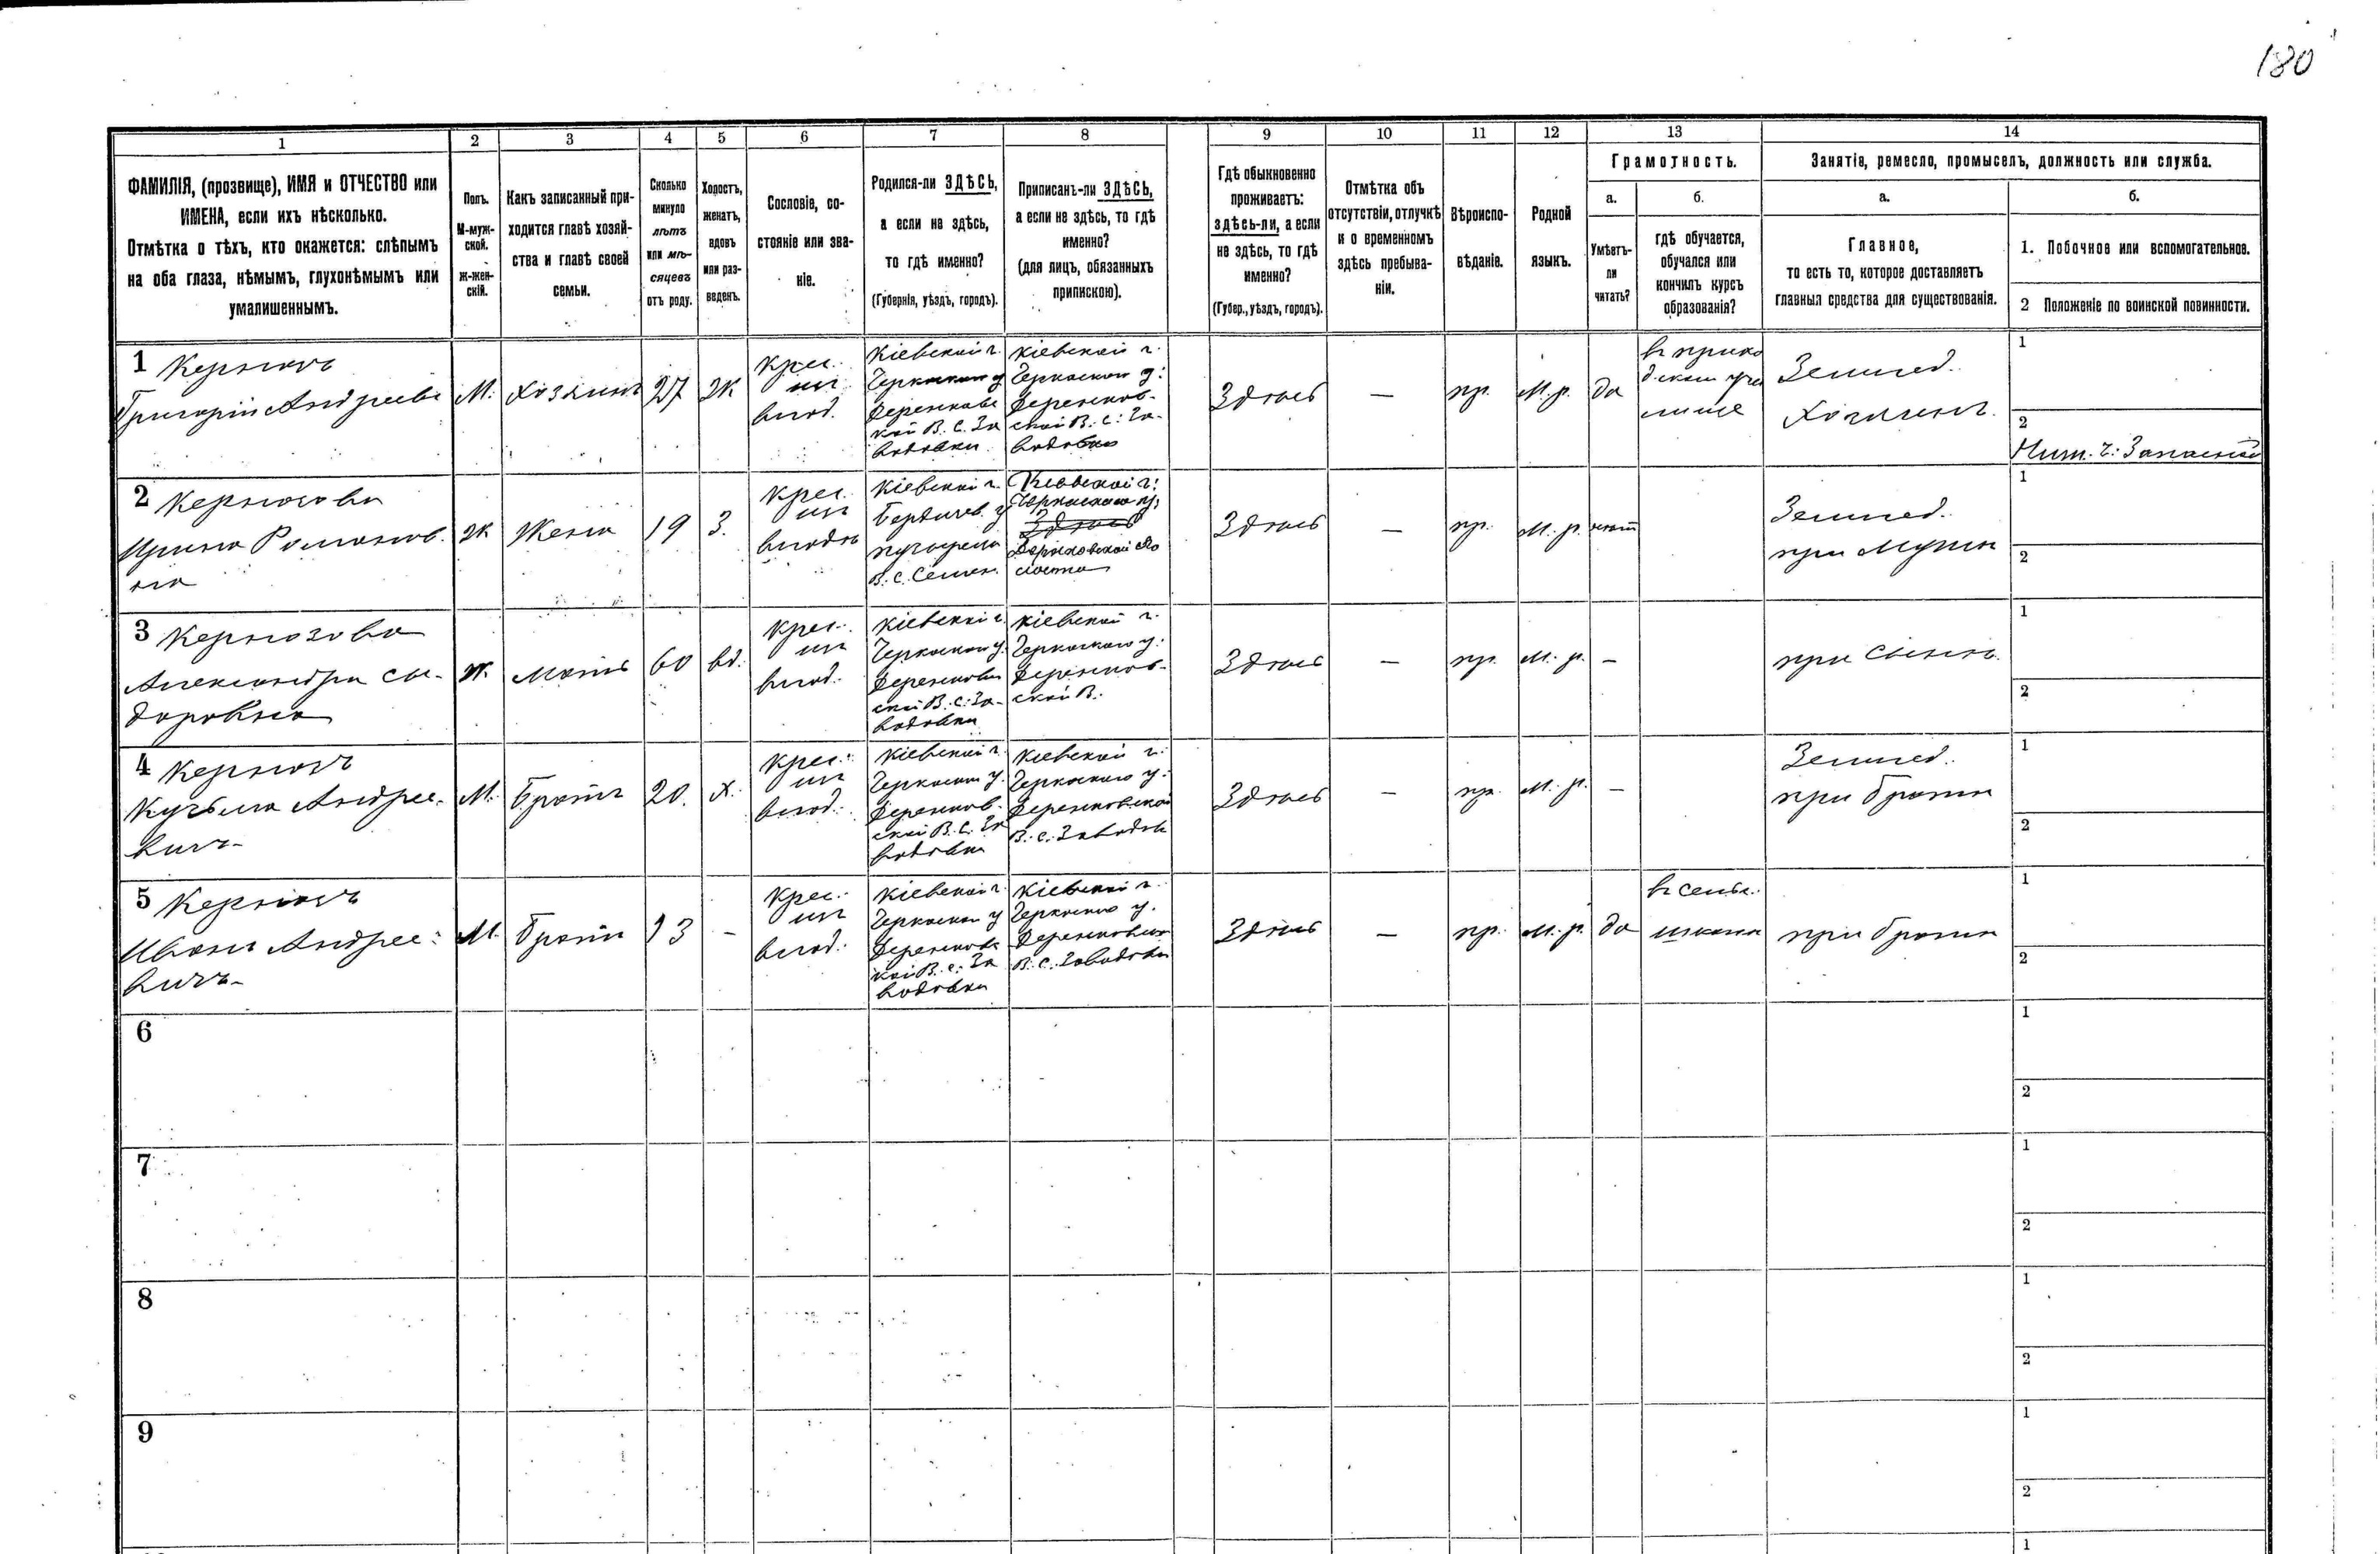 180
1 2 3 4 5 6 7 8 9 10 11 12 13 14
ФАМИЛІЯ, (прозвище), ИМЯ и ОТЧЕСТВО или
ИМЕНА, если ихъ нѣсколько.
Отмѣтка о тѣхъ, кто окажется: слѣпымъ
на оба глаза, нѣмымъ, глухонѣмымъ или
умалишеннымъ.
Полъ.
М-муж-
ской.
ж-жен-
скій.
Какъ записанный при-
ходится главѣ хозяй-
ства и главѣ своей
семьи.
Сколько
минуло
лѣтъ
или мѣ-
сяцевъ
отъ роду.
Холостъ,
женатъ,
вдовъ
или раз-
веденъ.
Сословіе, со-
стояніе или зва-
ніе.
Родился-ли ЗДѢСЬ,
а если не здѣсь,
то гдѣ именно?
(Губернія, уѣздъ, городъ).
Приписанъ-ли ЗДѢСЬ,
а если не здѣсь, то гдѣ
именно?
(для лицъ, обязанныхъ
припискою).
Гдѣ обыкновенно
проживаетъ:
здѣсь-ли, а если
не здѣсь, то гдѣ
именно?
(Губер., уѣздъ, городъ).
Отмѣтка объ
отсутствіи, отлучкѣ
и о временномъ
здѣсь пребыва-
ніи.
Вѣроиспо-
вѣданіе.
Родной
языкъ.
Грамотность.
а.
Умѣетъ-
ли
читать?
б.
гдѣ обучается,
обучался или
кончилъ курсъ
образованія?
Занятіе, ремесло, промыселъ, должность или служба.
а.
Главное,
то есть то, которое доставляетъ
главныя средства для существованія.
б.
1. Побочное или вспомогательное.
2 Положеніе по воинской повинности.
1
Григорій Андреевъ
М.
Хозяинъ
27
Ж
Крес.
изъ
влад.
Кіевской г.
Черкаскаго у
В. с. За
водовки
Кіевской г.
Черкаскаго у:
В. с: За-
водовки
Здѣсь
—
пр.
М. р.
да
Землед.
Хозяинъ.
1
2
Ниж. ч: Запасный
2
Ирина Романов-
на
ж
Жена
19
З.
Крес.
изъ
Кіевской г.
Бердичев. у
В. с.
Кіевской г:
Черкаскаго у:
Здѣсь
Здѣсь
—
пр.
М. р.
нѣт
Землед.
при Мужѣ
1
2
3
Александра Си-
доровна
ж.
Мать
60
вд.
Крес.
изъ
влад.
Кіевской г.
Черкаскаго у.
ской В. с: За-
водовки
Кіевской г.
Черкаскаго у.
ской В.
Здѣсь
—
пр.
М. р.
—
при сынѣ.
1
2
4
Кузьма Андрее-
вичъ
М.
Братъ
20.
х.
Крес.
изъ
влад.
Кіевской г.
Черкаскаго у.
ской В. с. За
водовки
Кіевской г.
Черкаскаго у.
В. с.
Здѣсь
—
пр.
М. р.
—
Землед.
при братѣ
1
2
5
Иванъ Андрее-
вичъ
М.
братъ
13
-
Крес.
изъ
влад.
Кіевской г.
Черкаскаго у
кой В. с: За
водовки
Кіевской г.
Черкаскаго у.
В. с. Заводовки
Здѣсь
—
пр.
М. р.
да
школѣ
при братѣ
1
2
6
1
2
7
1
2
8
1
2
9
1
2
1